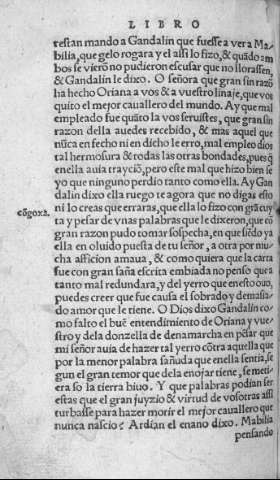 LIBRO
restan mando a Gandalin que fuesse a ver a Ma-
bilia, que gelo rogara y el assi lo fizo, & quãdo am
bos se vierõ no pudieron escusar que no llorassen,
& Gandalin le dixo. O señora que gran sin razõ
ha hecho Oriana a vos & a vuestro linaje, que vos
quito el mejor cauallero del mundo. Ay que mal
empleado fue quãto la vos seruistes, que gran sin
razon della auedes recebido, & mas aquel que
nũca en fecho ni en dicho le erro, mal empleo dios
tal hermosura & todas las otras bondades, pues q̃
en ella auia trayciõ, pero este mal que hizo bien se
yo que ninguno perdio tanto como ella. Ay Gan
dalin dixo ella ruego te agora que no digas esso
ni lo creas que erraras, que ella lo fizo con grã cuy
cõgoxa. ta y pesar de vnas palabras que le dixeron, que cõ
gran razon pudo tomar sospecha, en que siẽdo ya
ella en oluido puesta de tu señor, a otra por mu-
cha afficion amaua, & como quiera que la carta
fue con gran saña escrita embiada no penso que a
tanto mal redundara, y del yerro que en esto ouo,
puedes creer que fue causa el sobrado y demasia-
do amor que le tiene. O Dios dixo Gandalin co
mo falto el buẽ entendimiento de Oriana y vue-
stro y dela donzella de denamarcha en pẽsar que
mi señor auia de hazer tal yerro cõtra aquella que
por la menor palabra sañuda que enella sentia, se
gun el gran temor que dela enojar tiene, se meti-
era so la tierra biuo. Y que palabras podian ser
estas que el gran juyzio & virtud de vosotras assi
turbasse para hazer morir el mejor cauallero que
nunca nascio: Ardian el enano dixo. Mabilia
pensando